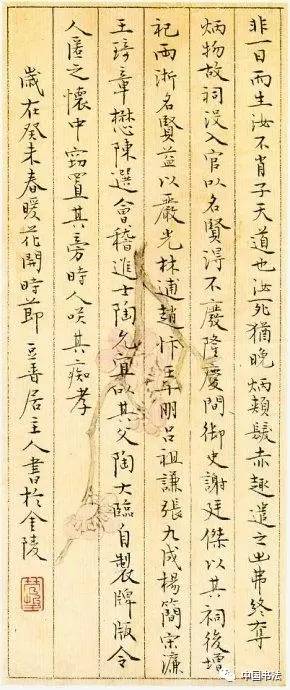 非一日而生汝不肖子天道也汝死猶晚炳頰髮赤趣遣之出弗終奪
炳物故祠沒入官以名賢得不廢隆慶間御史謝廷傑以其祠後增
祀兩浙名賢益以嚴光林逋趙忭王十朋呂祖謙張九成楊簡宋濂
王琦章懋陳選會稽進士陶允宜以其父陶大臨自製牌版令
人匿之懷中竊置其旁時人咲其癡孝
歲在癸未春暖花開時節善居主人書於金陵
中国书法